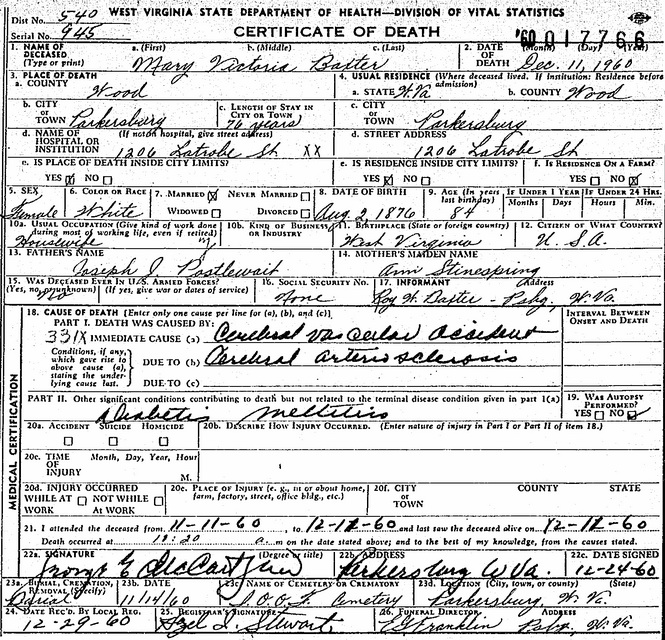 WEST VIRGINIA STATE DEPARTMENT OF HEALTH—DIVISION OF VITAL STATISTICS
Dist No. 540
Serial No. 945
CERTIFICATE OF DEATH
'60 017766
1. NAME OF DECEASED (Type or print) a. (First) b. (Middle) c. (Last) Mary Victoria Baxter
2. DATE OF DEATH (Month) (Day) (Year) Dec. 11, 1960
3. PLACE OF DEATH
a. COUNTY Wood
4. USUAL RESIDENCE (Where deceased lived. If Institution: Residence before admission)
a. STATE W. Va b. COUNTY Wood
b. CITY OR TOWN Parkersburg
c. LENGTH OF STAY IN CITY OR TOWN 76 years
c. CITY OR TOWN Parkersburg
d. NAME OF HOSPITAL OR INSTITUTION (If not in hospital, give street address) 1206 Latrobe St XX
d. STREET ADDRESS 1206 Latrobe St
e. IS PLACE OF DEATH INSIDE CITY LIMITS? YES NO
e. IS RESIDENCE INSIDE CITY LIMITS? YES NO
f. IS RESIDENCE ON A FARM? YES NO
5. SEX Female
6. COLOR OR RACE White
7. MARRIED NEVER MARRIED WIDOWED DIVORCED
8. DATE OF BIRTH Aug 2, 1876
9. AGE (In years last birthday) 84
IF UNDER 1 YEAR Months Days
IF UNDER 24 HRS. Hours Min.
10a. USUAL OCCUPATION (Give kind of work done during most of working life, even if retired) Housewife
10b. KIND OF BUSINESS OR INDUSTRY
11. BIRTHPLACE (State or foreign country) West Virginia
12. CITIZEN OF WHAT COUNTRY? U. S. A.
13. FATHER'S NAME Joseph J. Postlewait
14. MOTHER'S MAIDEN NAME Ann Stinespring
15. WAS DECEASED EVER IN U.S. ARMED FORCES? (Yes, no, or unknown) (If yes, give war or dates of service) No
16. SOCIAL SECURITY No. None
17. INFORMANT Address Roy W. Baxter - Pkbg, W. Va.
18. CAUSE OF DEATH [Enter only one cause per line for (a), (b), and (c).]
INTERVAL BETWEEN ONSET AND DEATH
PART I. DEATH WAS CAUSED BY:
331X IMMEDIATE CAUSE (a) Cerebral vascular accident
Conditions, if any, which gave rise to above cause (a), stating the underlying cause last.
DUE TO (b) Cerebral arteriosclerosis
DUE TO (c)
PART II. Other significant conditions contributing to death but not related to the terminal disease condition given in part 1(a)
Diabetis mellitus
19. WAS AUTOPSY PERFORMED? YES NO
MEDICAL CERTIFICATION
20a. ACCIDENT SUICIDE HOMICIDE
20b. DESCRIBE HOW INJURY OCCURRED. (Enter nature of injury in Part I or Part II of item 18.)
20c. TIME OF INJURY Month, Day, Year, Hour M.
20d. INJURY OCCURRED WHILE AT WORK NOT WHILE AT WORK
20e. PLACE OF INJURY (e. g., in or about home, farm, factory, street, office bldg., etc.)
20f. CITY OR TOWN COUNTY STATE
21. I attended the deceased from 11-11-60, to 12-11-60 and last saw the deceased alive on 12-11-60
Death occurred at 11:20 a. m on the date stated above; and to the best of my knowledge, from the causes stated.
22a. SIGNATURE (Degree or title)
22b. ADDRESS Parkersburg W Va.
22c. DATE SIGNED 12-24-60
23a. BURIAL, CREMATION, REMOVAL (Specify) Burial
23b. DATE 11/14/60
23c. NAME OF CEMETERY OR CREMATORY I. O. O. F. Cemetery
23d. LOCATION (City, town, or county) (State) Parkersburg W. Va.
24. DATE REC'D. BY LOCAL REG. 12-29-60
25. REGISTRAR'S SIGNATURE Hazel I. Stewart
26. FUNERAL DIRECTOR ADDRESS Franklin Pkbg. W. Va.